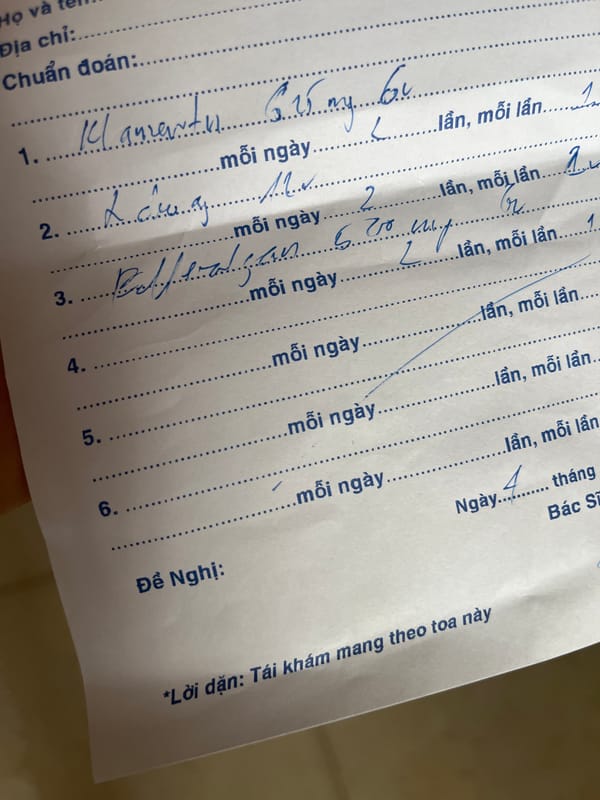 Họ và tên
Địa chỉ:
Chuẩn đoán:
1. Klamentin 625 mg
mỗi ngày 2 lần, mỗi lần 1
2.
mỗi ngày 2 lần, mỗi lần 1
3. Efferalgan 500 mg
mỗi ngày 2 lần, mỗi lần 1
4.
mỗi ngày lần, mỗi lần
5.
mỗi ngày lần, mỗi lần
6.
mỗi ngày lần, mỗi lần
Ngày 4 tháng
Bác Sĩ
Đề Nghị:
*Lời dặn: Tái khám mang theo toa này